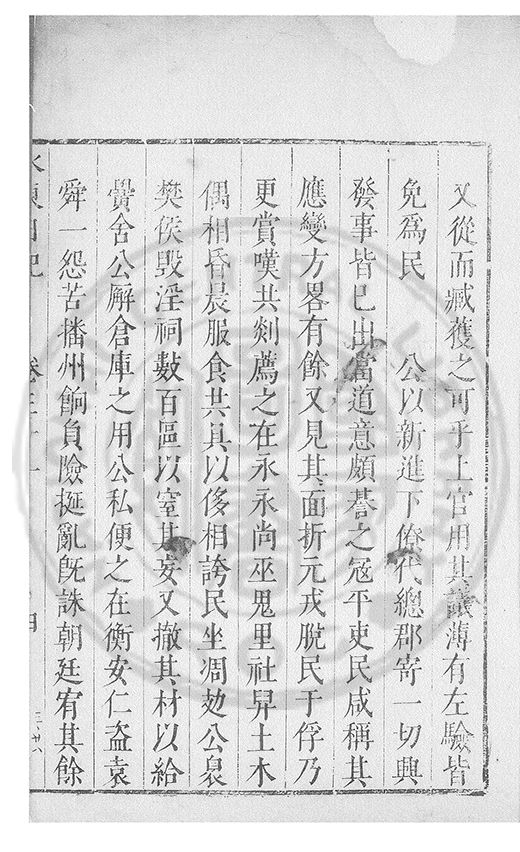 又從而臧獲之可乎上官用其議薄有左驗皆
免爲民　　公以新進下僚代總郡寄一切興
發事皆已出當道意頗諅之冦平吏民咸稱其
應變方畧有餘又見其面折元戎脫民于俘乃
更賞嘆共剡薦之在永永尚巫鬼里社舁土木
偶相昏晨服食共具以侈相誇民坐凋勊公臮
樊侯毁淫祠數百區以窒其妄又撤其材以給
黌舍公廨倉庫之用公私便之在衡安仁盗袁
舜一怨苦播州餉負險挻亂旣誅朝廷宥其餘
水東日記　卷三十